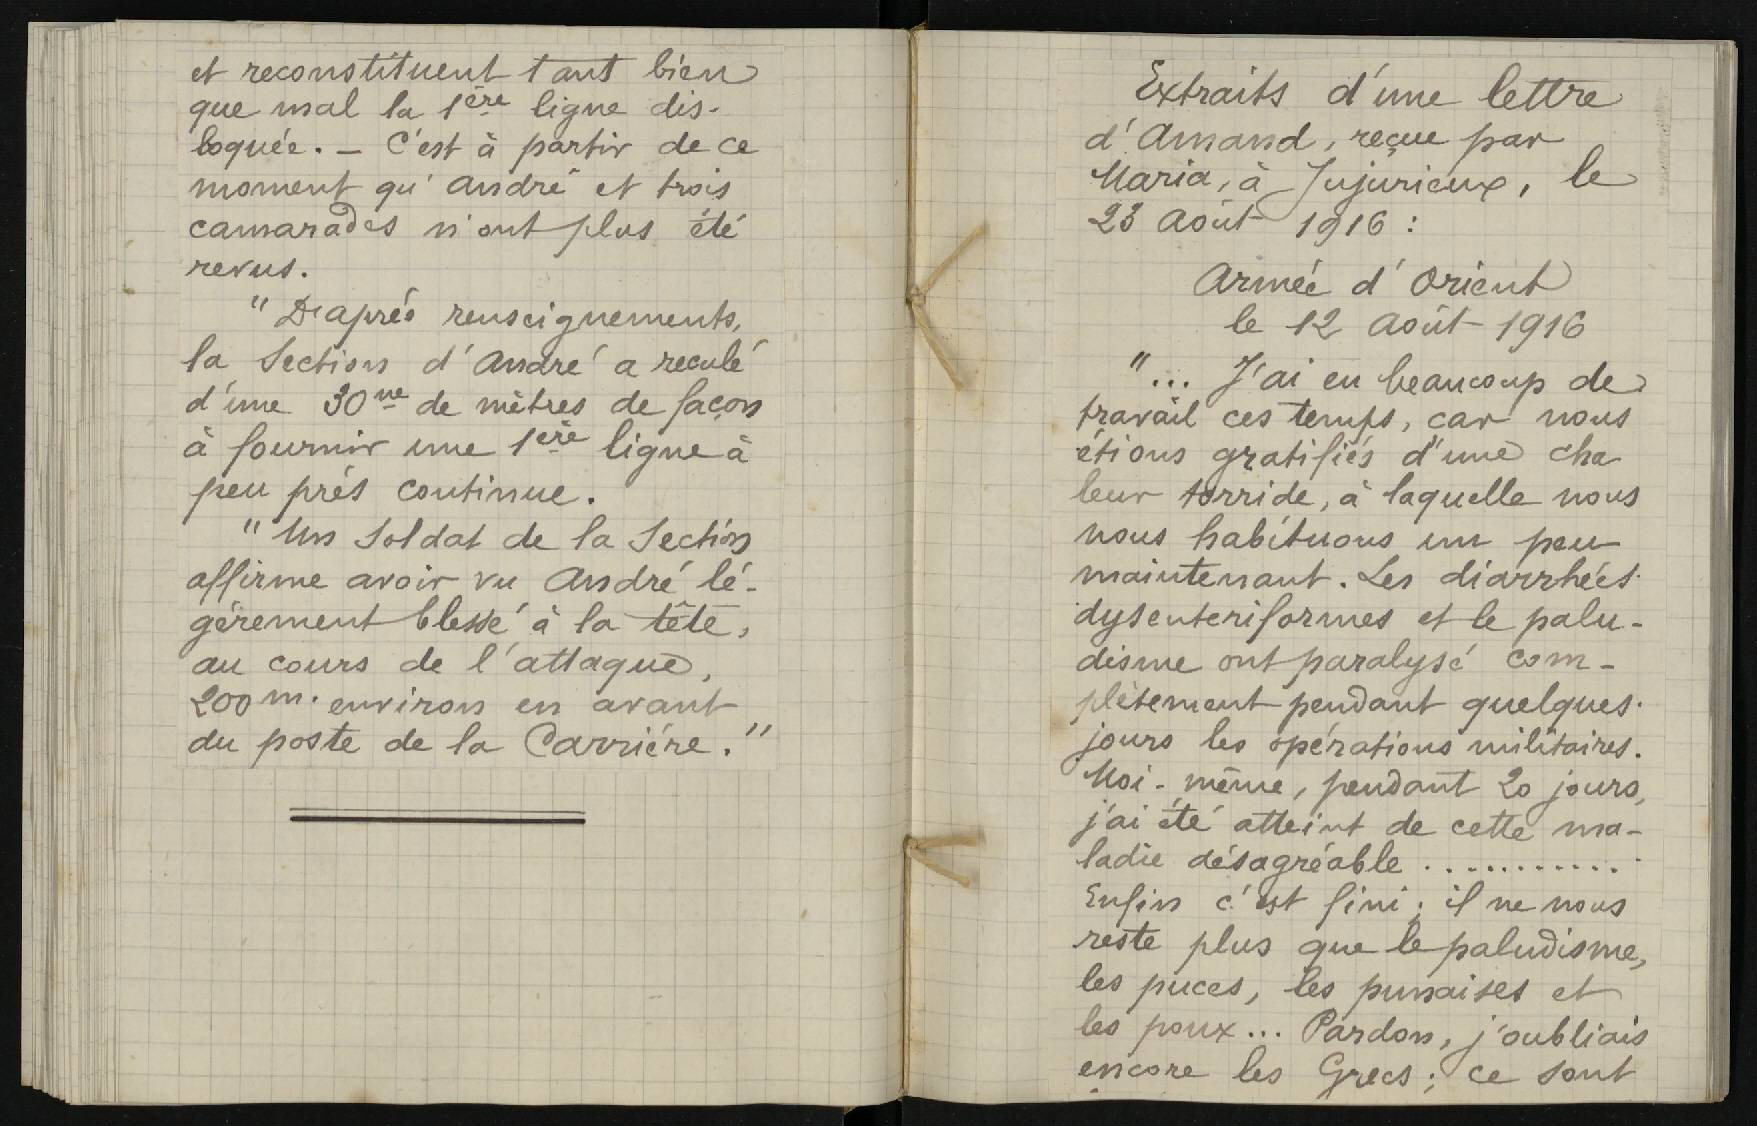 et reconstituent tant bien
que mal la 1ère ligne dis-
loquée. - C'est à partir de ce
moment qu'André et trois
camarades n'ont plus été
revus.
"D'après renseignements,
la Section d'André a reculé
d'une 30ne de mètres de façon
à fournir une 1ère ligne à
peu près continue.
"Un soldat de la Section
affirme avoir vu André lé-
gèrement blessé à la tête,
au cours de l'attaque,
200 m. environ en avant
du poste de la Carrière."
Extraits d'une lettre
d'Amand, reçue par
Maria, à Jujurieux, le
23 Août 1916 :
Armée d'Orient
le 12 Août 1916
"... J'ai eu beaucoup de
travail ces temps, car nous
étions gratifiés d'une cha
leur torride, à laquelle nous
nous habituons un peu
maintenant. Les diarrhées
dysenteriformes et le palu-
disme ont paralysé com-
plètement pendant quelques
jours les opérations militaires.
Moi-même, pendant 20 jours,
j'ai été atteint de cette ma-
ladie désagréable ............
Enfin c'est fini ; il ne nous
reste plus que le paludisme,
les puces, les punaises et
les poux... Pardon, j'oubliais
encore les Grecs ; ce sont